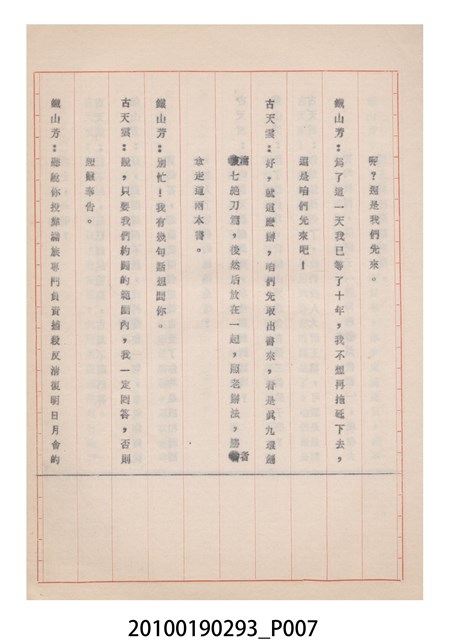 呀?還是我們先來。
鐵山芳:為了這一天我已等了十年,我不想再拖延下去,
還是咱們先來吧!
古天雲:好,就這麼辦,咱們先取出書來,看是真九環劍
七絕刀譜,後然后放在一起,照老辦法,勝者
拿走這兩本書。
鐵山芳:別忙!我有幾句話想問你。
古天雲:說,只要我們約關的範圍內,我一定回答,否則
恕難奉告。
鐵山芳:聽說你投靠滿族專門負責捕殺反清復明日月會的
20100190293_P007